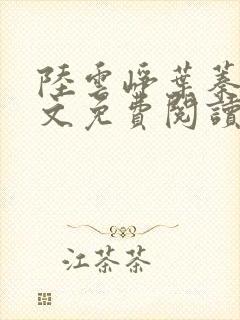 陸雲崢葉蓁
文免費閱讀
江茶茶